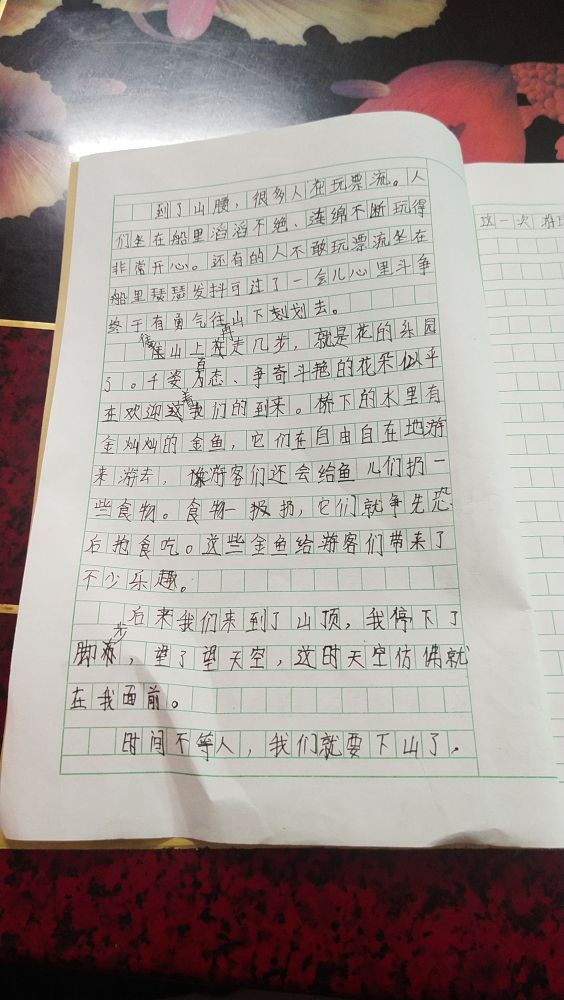 到了山腰，很多人在玩票流。人
们坐在船里滔滔不绝、连绵不断玩得
非常开心。还有的人不敢玩票流坐在
船里瑟瑟发抖可过了一会儿心里斗争
终于有勇气往山下划去。
往山上再走几步，就是花的乐园
了。千姿百态、争奇斗艳的花朵似乎
在欢迎着我们的到来。桥下的水里有
金灿灿的金鱼，它们在自由自在地游
来游去，游客们还会给鱼儿们扔一
些食物。食物一扔，它们就争先恐
后抢食吃。这些金鱼给游客们带来了
不少乐趣。
后来我们来到了山顶，我停下了
脚步，望了望天空，这时天空仿佛就
在我面前。
时间不等人，我们就要下山了。
这一次